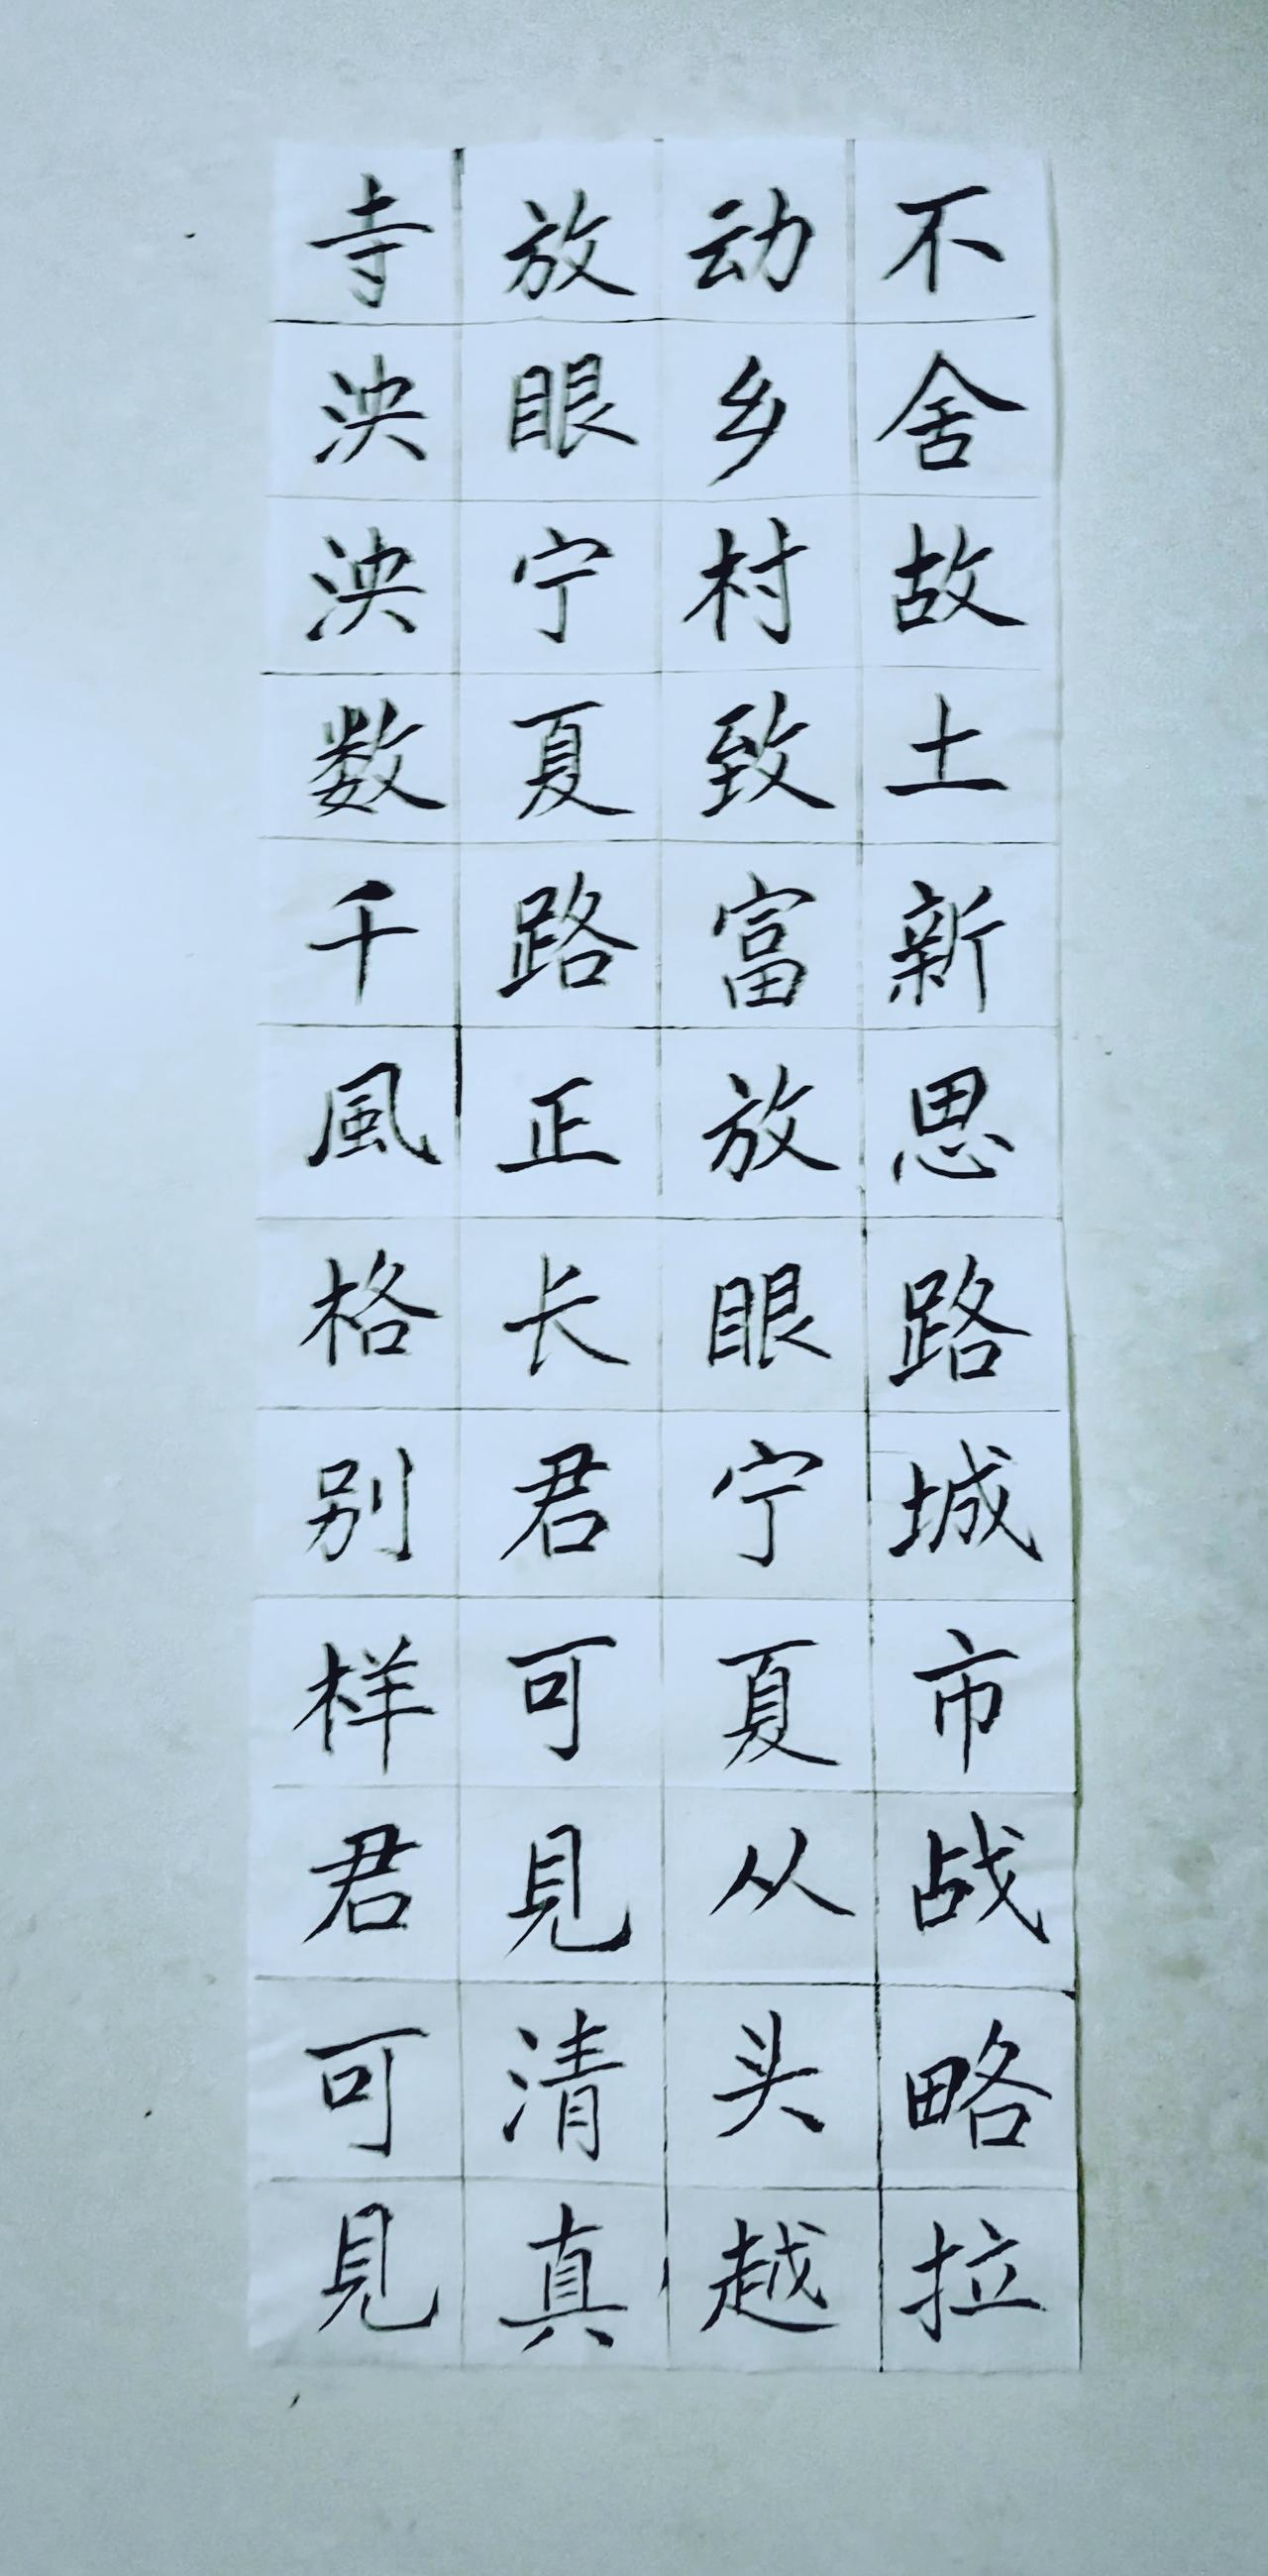 不舍故土新思路城市战略拉
动乡村致富放眼宁夏从头越
放眼宁夏路正长君可見清真
寺泱泱数千風格别样君可見